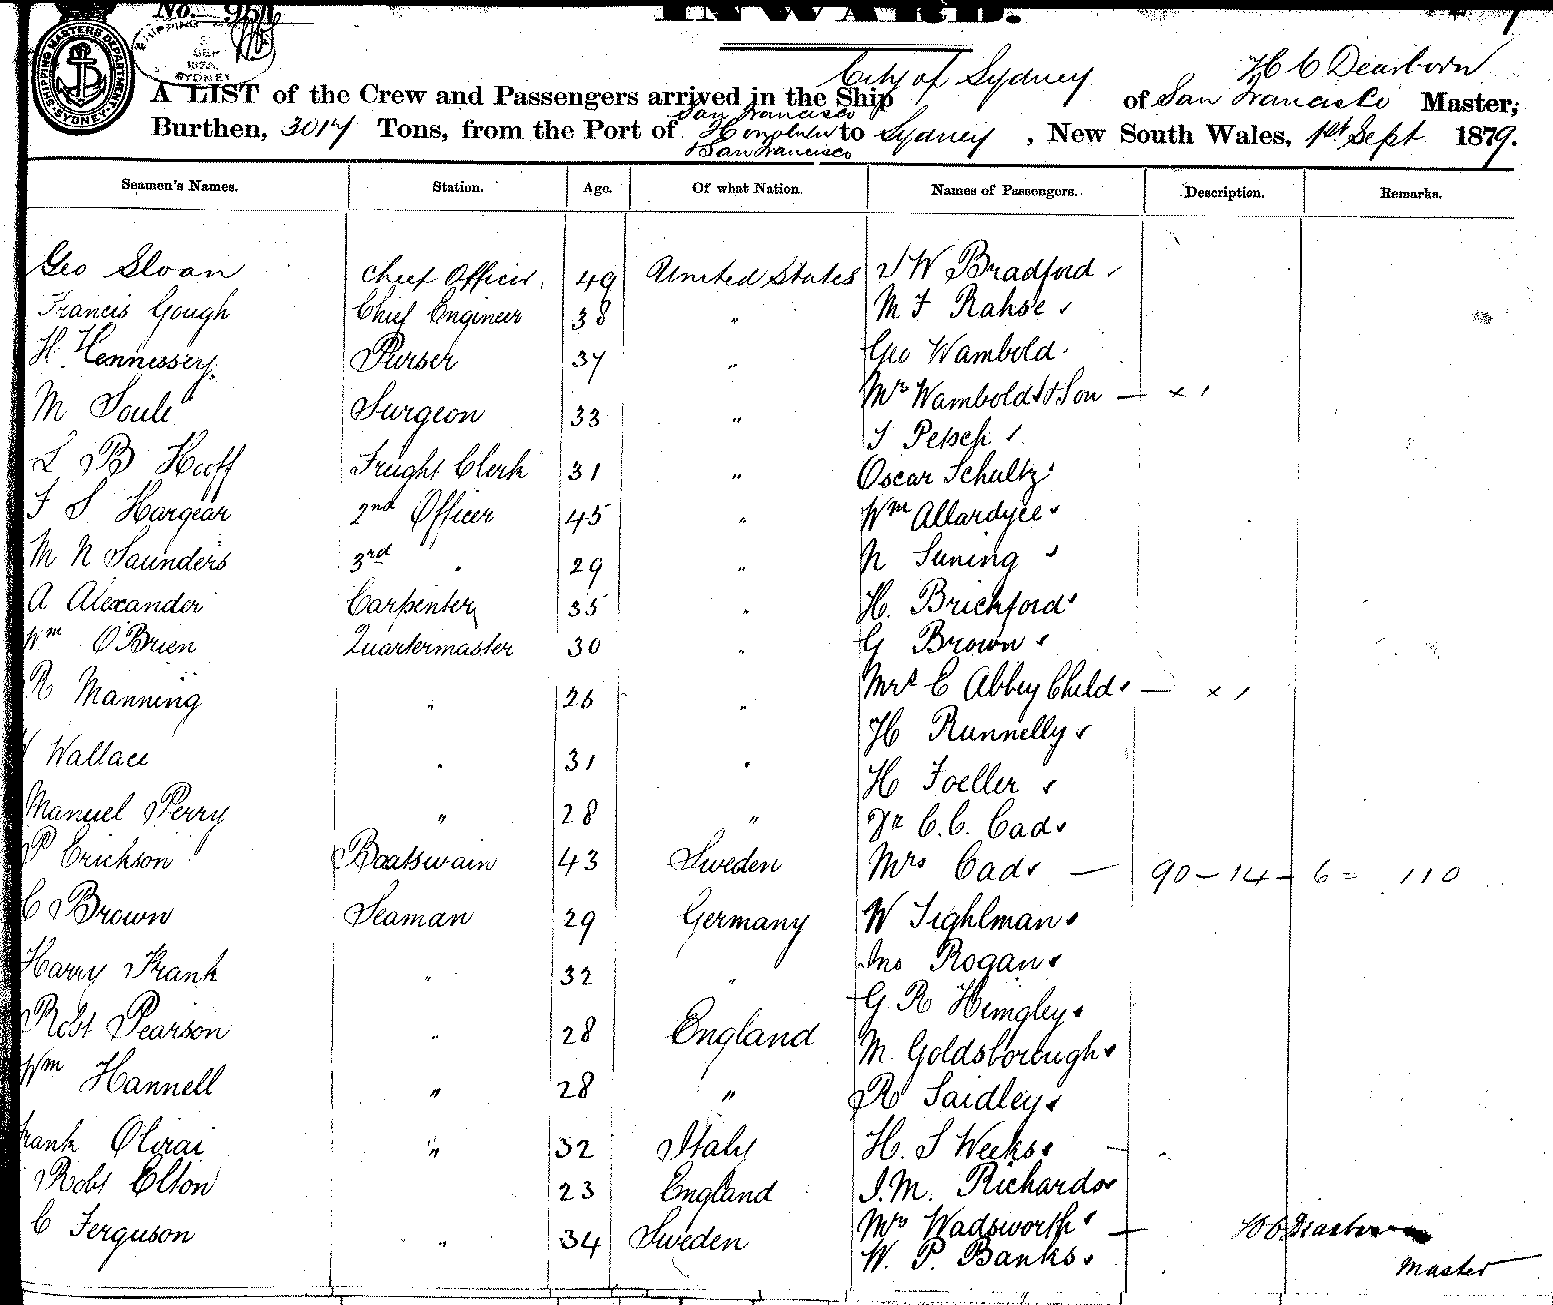 No. 951
INWARD.
SHIPPING MASTERS DEPARTMENT SYDNEY
SEP
SYDNEY
City of Sydney H C Dearborn
A LIST of the Crew and Passengers arrived in the Ship of San Francisco Master,
San Francisco
Burthen, 3017 Tons, from the Port of Honolulu to Sydney, New South Wales, 1st Sept 1879.
San Francisco
Seamen's Names. Station. Age. Of what Nation. Names of Passengers. Description. Remarks.
Geo Sloan Chief Officer 49 United States J W Bradford
Francis Gough Chief Engineer 38 " M F Rahse
H. Hennessey Purser 37 " Geo Wambold
M Soule Surgeon 33 " Mrs Wambold & Son — x 1
T Petsch
L B Hoff Freight Clerk 31 " Oscar Schultz
F S Hargear 2nd Officer 45 " Wm Allardyce
M N Saunders 3rd " 29 " N Suning
A Alexander Carpenter 35 " H. Brichford
Wm O'Brien Quartermaster 30 " G Brown
R Manning " 26 " Mrs C Abbey Child — x 1
H Runnelly
Wallace " 31 " H Foeller
Manuel Perry " 28 " Dr C. C. Cad
P Erickson Boatswain 43 Sweden Mrs Cad — 90 – 14 – 6 = 110
C Brown Seaman 29 Germany W Tighlman
Harry Frank " 32 " Jno Rogan
G R Hingley
Robt Pearson " 28 England M. Goldsborough
Wm Hannell " 28 " R Saidley
Frank Olivai " 32 Italy H. S Weeks
Robt Elton 23 England J. M. Richards
C Ferguson " 34 Sweden Mrs Wadsworth — H C Dearborn
W. P. Banks Master